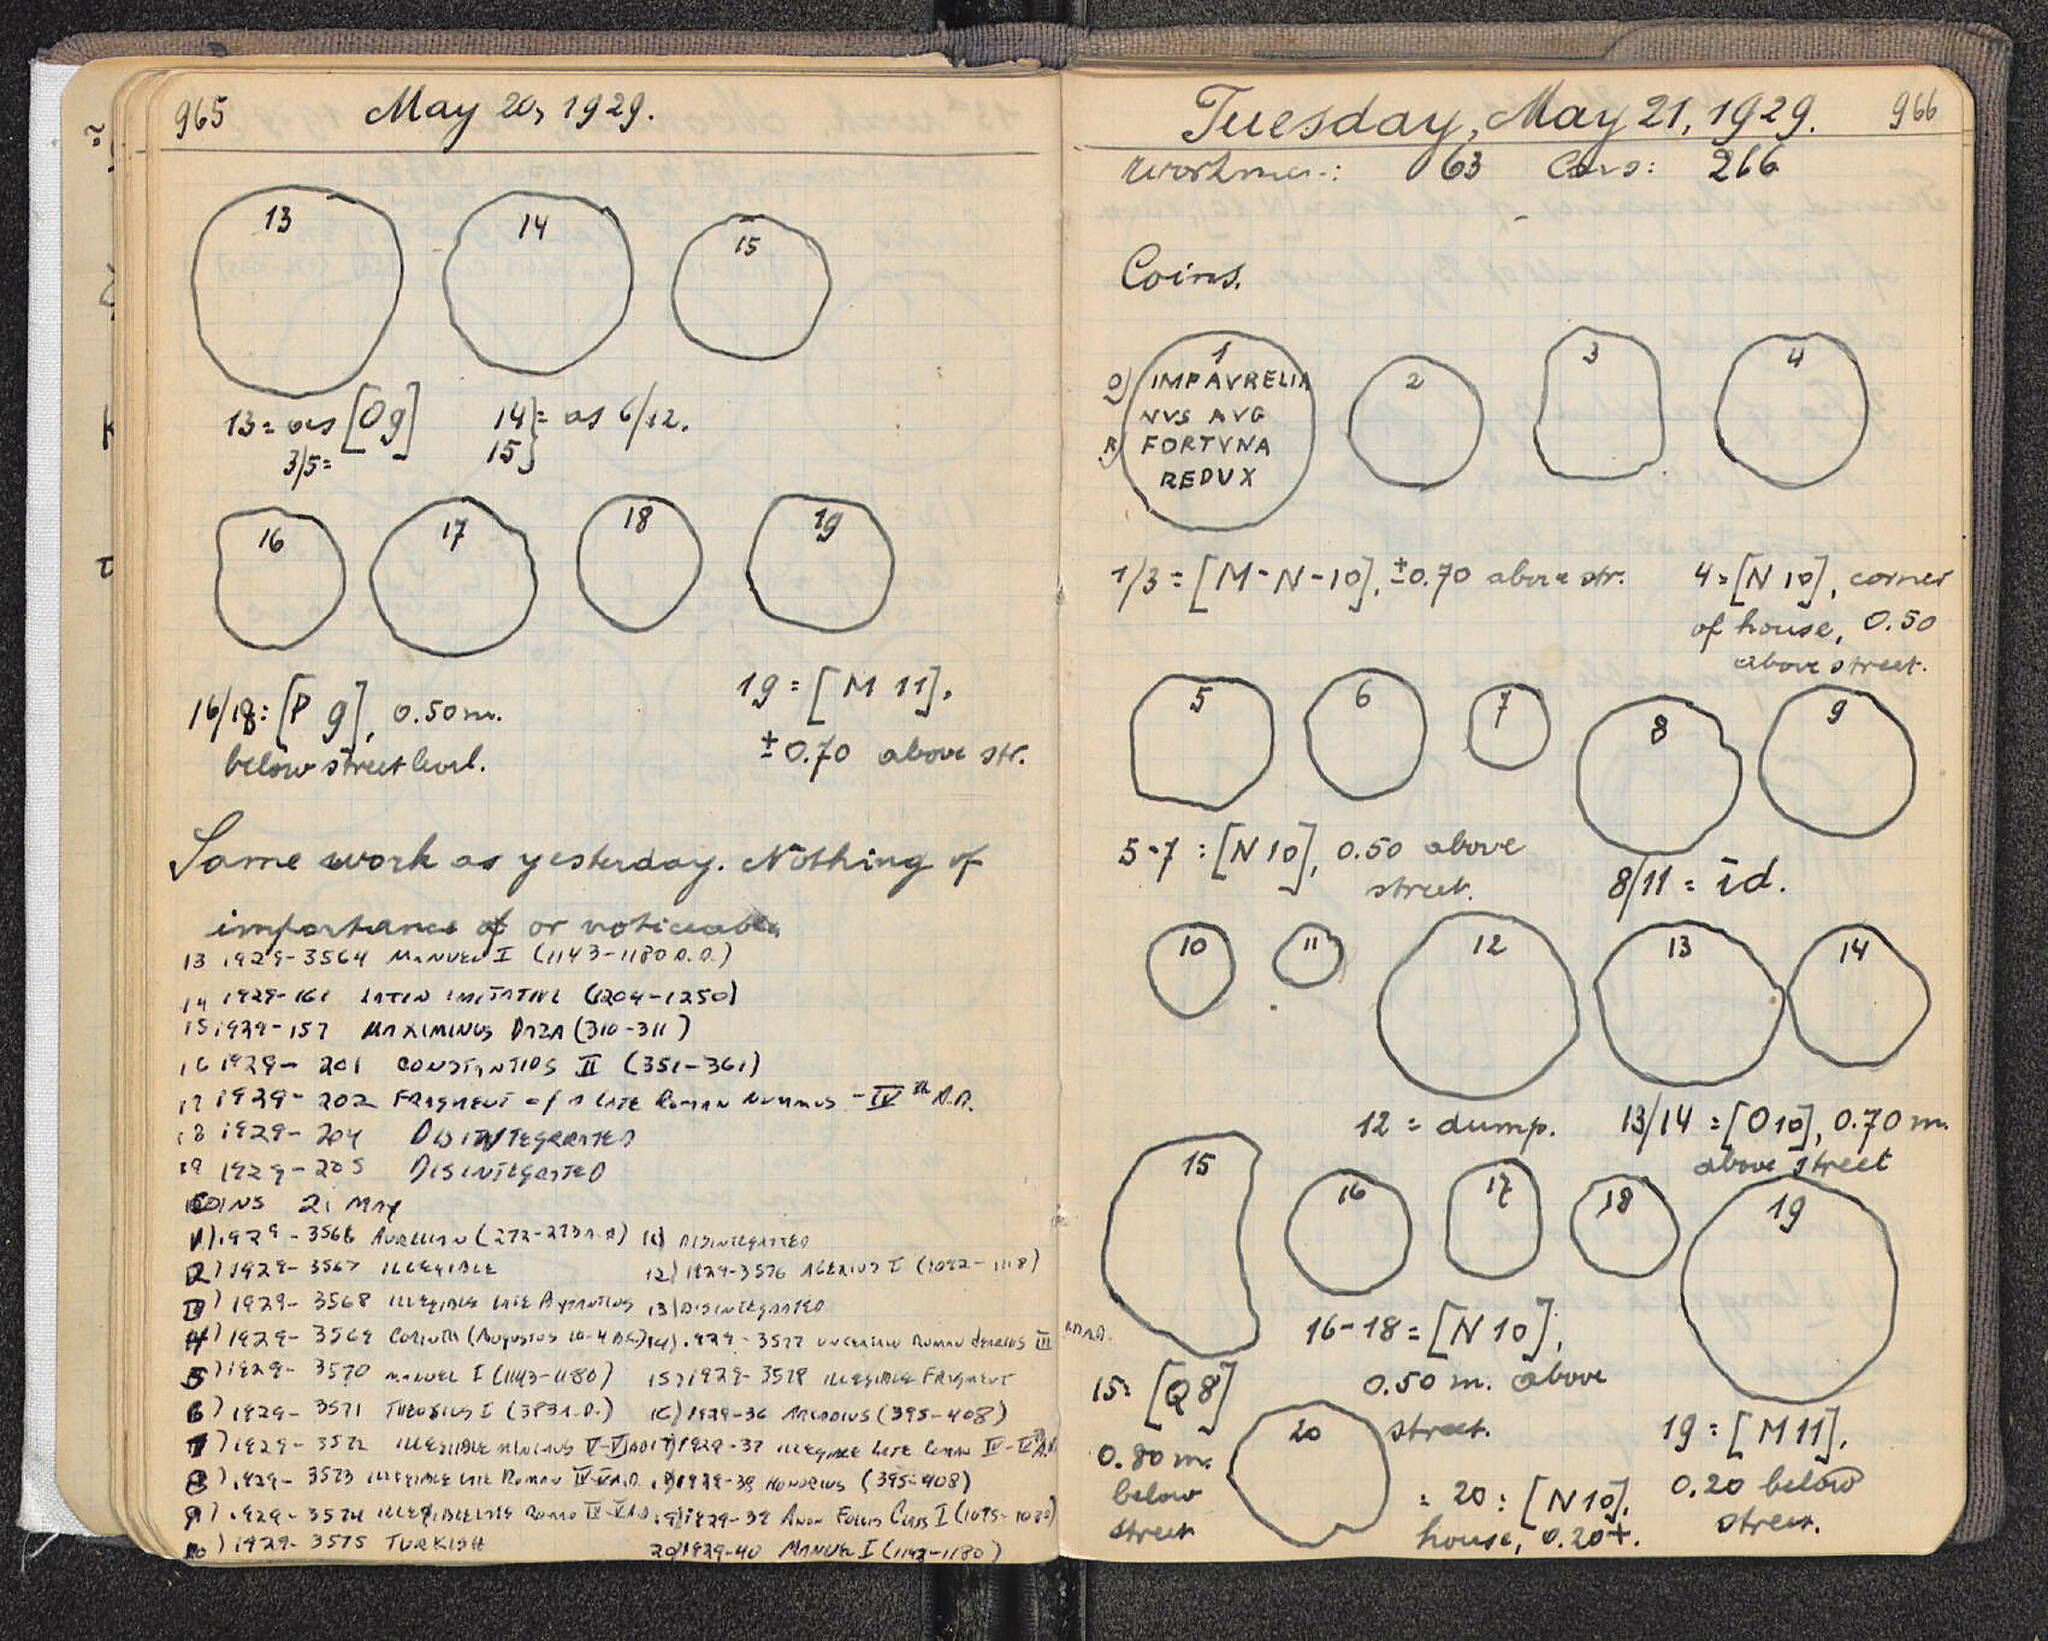 965 May 20, 1929.
13 14 15
13 = as [O9] 14 } = as 6/12.
3/5= 15 }
16 17 18 19
16/18: [P 9], 0.50 m.
below street level.
19 = [M 11].
± 0.70 above str.
Same work as yesterday. Nothing of
importance of or noticeable
13 1929-3564 MANUEL I (1143-1180 A.D.)
14 1929-161 LATIN IMITATIVE (1204-1250)
15 1929-157 MAXIMINUS DAZA (310-311)
16 1929-201 CONSTANTIOS II (351-361)
17 1929-202 FRAGMENT of A LATE ROMAN NUMMUS - IVth A.D.
18 1929-204 DISINTEGRATED
19 1929-205 DISINTEGRATED
COINS 21 MAY
1) 1929-3566 AURELIAN (272-273 A.D)
2) 1929-3567 ILLEGIBLE
3) 1929-3568 ILLEGIBLE LATE BYZANTINE
4) 1929-3569 CORINTH (Augustus 10-4 B.C.)
5) 1929-3570 MANUEL I (1143-1180)
6) 1929-3571 THEODOSIUS I (383 A.D.)
7) 1929-3572 ILLEGIBLE MINIMUS V-VI A.D.
8) 1929-3573 ILLEGIBLE LATE ROMAN IV-V A.D.
9) 1929-3574 ILLEGIBLE LATE ROMAN IV-V A.D.
10) 1929-3575 TURKISH
11) DISINTEGRATED
12) 1929-3576 ALEXIUS I (1092-1118)
13) DISINTEGRATED
14) 1929-3577 UNCERTAIN ROMAN III
15) 1929-3578 ILLEGIBLE FRAGMENT
16) 1929-36 ARCADIUS (395-408)
17) 1929-37 ILLEGIBLE LATE ROMAN IV-V A.D.
18) 1929-38 HONORIUS (395-408)
19) 1929-39 ANON FOLLIS CLASS I
20) 1929-40 MANUEL I (1143-1180)
Tuesday, May 21, 1929. 966
Workmen: 63 Cars: 266
Coins.
1 2 3 4
O) IMPAVRELIA
NVS AVG
R) FORTVNA
REDUX
1/3 = [M-N-10], ±0.70 above str.
4 = [N 10], corner
of house, 0.50
above street.
5 6 7 8 9
5-7 : [N 10], 0.50 above
street.
8/11 = id.
10 11 12 13 14
12 = dump.
13/14 = [O 10], 0.70 m.
above street
15 16 17 18 19
16-18 = [N 10],
0.50 m. above
street.
15: [Q 8]
0.80 m.
below
street
20
= 20 : [N 10],
house, 0.20+.
19 = [M 11],
0.20 below
street.